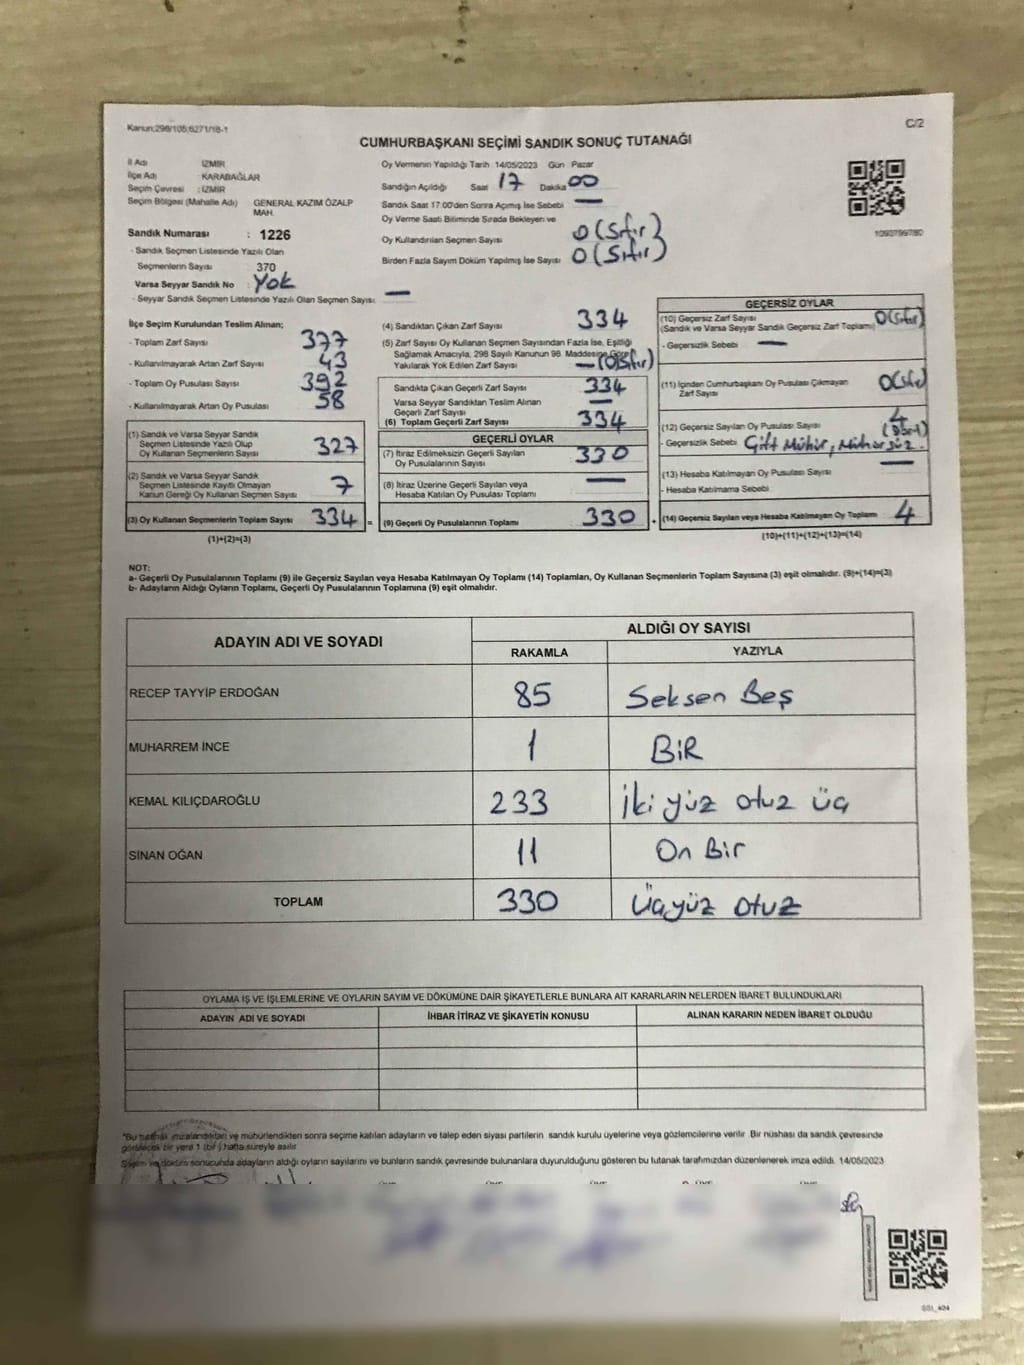 Kanun;298/105;6271/18-1
C/2
CUMHURBAŞKANI SEÇİMİ SANDIK SONUÇ TUTANAĞI
İl Adı İZMİR
İlçe Adı KARABAĞLAR
Seçim Çevresi : İZMİR
Seçim Bölgesi (Mahalle Adı) GENERAL KAZIM ÖZALP
MAH.
Sandık Numarası : 1226
- Sandık Seçmen Listesinde Yazılı Olan
Seçmenlerin Sayısı 370
Varsa Seyyar Sandık No : Yok
- Seyyar Sandık Seçmen Listesinde Yazılı Olan Seçmen Sayısı: —
Oy Vermenin Yapıldığı Tarih 14/05/2023 Gün Pazar
Sandığın Açıldığı Saat 17 Dakika 00
Sandık Saat 17:00'den Sonra Açmış İse Sebebi —
Oy Verme Saati Bitiminde Sırada Bekleyen ve
Oy Kullandırılan Seçmen Sayısı 0 (Sıfır)
Birden Fazla Sayım Döküm Yapılmış İse Sayısı 0 (Sıfır)
1093799780
İlçe Seçim Kurulundan Teslim Alınan;
- Toplam Zarf Sayısı 377
- Kullanılmayarak Artan Zarf Sayısı 43
- Toplam Oy Pusulası Sayısı 392
- Kullanılmayarak Artan Oy Pusulası 58
(1) Sandık ve Varsa Seyyar Sandık
Seçmen Listesinde Yazılı Olup
Oy Kullanan Seçmenlerin Sayısı 327
(2) Sandık ve Varsa Seyyar Sandık
Seçmen Listesinde Kayıtlı Olmayan
Kanun Gereği Oy Kullanan Seçmen Sayısı 7
(3) Oy Kullanan Seçmenlerin Toplam Sayısı 334 =
(1)+(2)=(3)
(4) Sandıktan Çıkan Zarf Sayısı 334
(5) Zarf Sayısı Oy Kullanan Seçmen Sayısından Fazla İse, Eşitliği
Sağlamak Amacıyla, 298 Sayılı Kanunun 98. Maddesine Göre
Yakılarak Yok Edilen Zarf Sayısı — (0(Sıfır)
Sandıkta Çıkan Geçerli Zarf Sayısı 334
Varsa Seyyar Sandıktan Teslim Alınan
Geçerli Zarf Sayısı —
(6) Toplam Geçerli Zarf Sayısı 334
GEÇERLİ OYLAR
(7) İtiraz Edilmeksizin Geçerli Sayılan
Oy Pusulalarının Sayısı 330
(8) İtiraz Üzerine Geçerli Sayılan veya
Hesaba Katılan Oy Pusulası Toplamı —
(9) Geçerli Oy Pusulalarının Toplamı 330 +
GEÇERSİZ OYLAR
(10) Geçersiz Zarf Sayısı 0(Sıfır)
(Sandık ve Varsa Seyyar Sandık Geçersiz Zarf Toplamı)
- Geçersizlik Sebebi —
(11) İçinden Cumhurbaşkanı Oy Pusulası Çıkmayan
Zarf Sayısı 0(Sıfır)
(12) Geçersiz Sayılan Oy Pusulası Sayısı 4 (Dört)
- Geçersizlik Sebebi Çift Mühür, Mühürsüz.
(13) Hesaba Katılmayan Oy Pusulası Sayısı —
- Hesaba Katılmama Sebebi
(14) Geçersiz Sayılan veya Hesaba Katılmayan Oy Toplamı 4
(10)+(11)+(12)+(13)=(14)
NOT:
a- Geçerli Oy Pusulalarının Toplamı (9) ile Geçersiz Sayılan veya Hesaba Katılmayan Oy Toplamı (14) Toplamları, Oy Kullanan Seçmenlerin Toplam Sayısına (3) eşit olmalıdır. (9)+(14)=(3)
b- Adayların Aldığı Oyların Toplamı, Geçerli Oy Pusulalarının Toplamına (9) eşit olmalıdır.
ADAYIN ADI VE SOYADI
ALDIĞI OY SAYISI
RAKAMLA YAZIYLA
RECEP TAYYİP ERDOĞAN 85 Seksen Beş
MUHARREM İNCE 1 BİR
KEMAL KILIÇDAROĞLU 233 İki yüz otuz üç
SİNAN OĞAN 11 On Bir
TOPLAM 330 Üçyüz otuz
OYLAMA İŞ VE İŞLEMLERİNE VE OYLARIN SAYIM VE DÖKÜMÜNE DAİR ŞİKAYETLERLE BUNLARA AİT KARARLARIN NELERDEN İBARET BULUNDUKLARI
ADAYIN ADI VE SOYADI İHBAR İTİRAZ VE ŞİKAYETİN KONUSU ALINAN KARARIN NEDEN İBARET OLDUĞU
"Bu tutanak imzalandıktan ve mühürlendikten sonra seçime katılan adayların ve talep eden siyasi partilerin sandık kurulu üyelerine veya gözlemcilerine verilir. Bir nüshası da sandık çevresinde
görülecek bir yere 1 (bir) hafta süreyle asılır
Sayım ve döküm sonucunda adayların aldığı oyların sayılarını ve bunların sandık çevresinde bulunanlara duyurulduğunu gösteren bu tutanak tarafımızdan düzenlenerek imza edildi. 14/05/2023